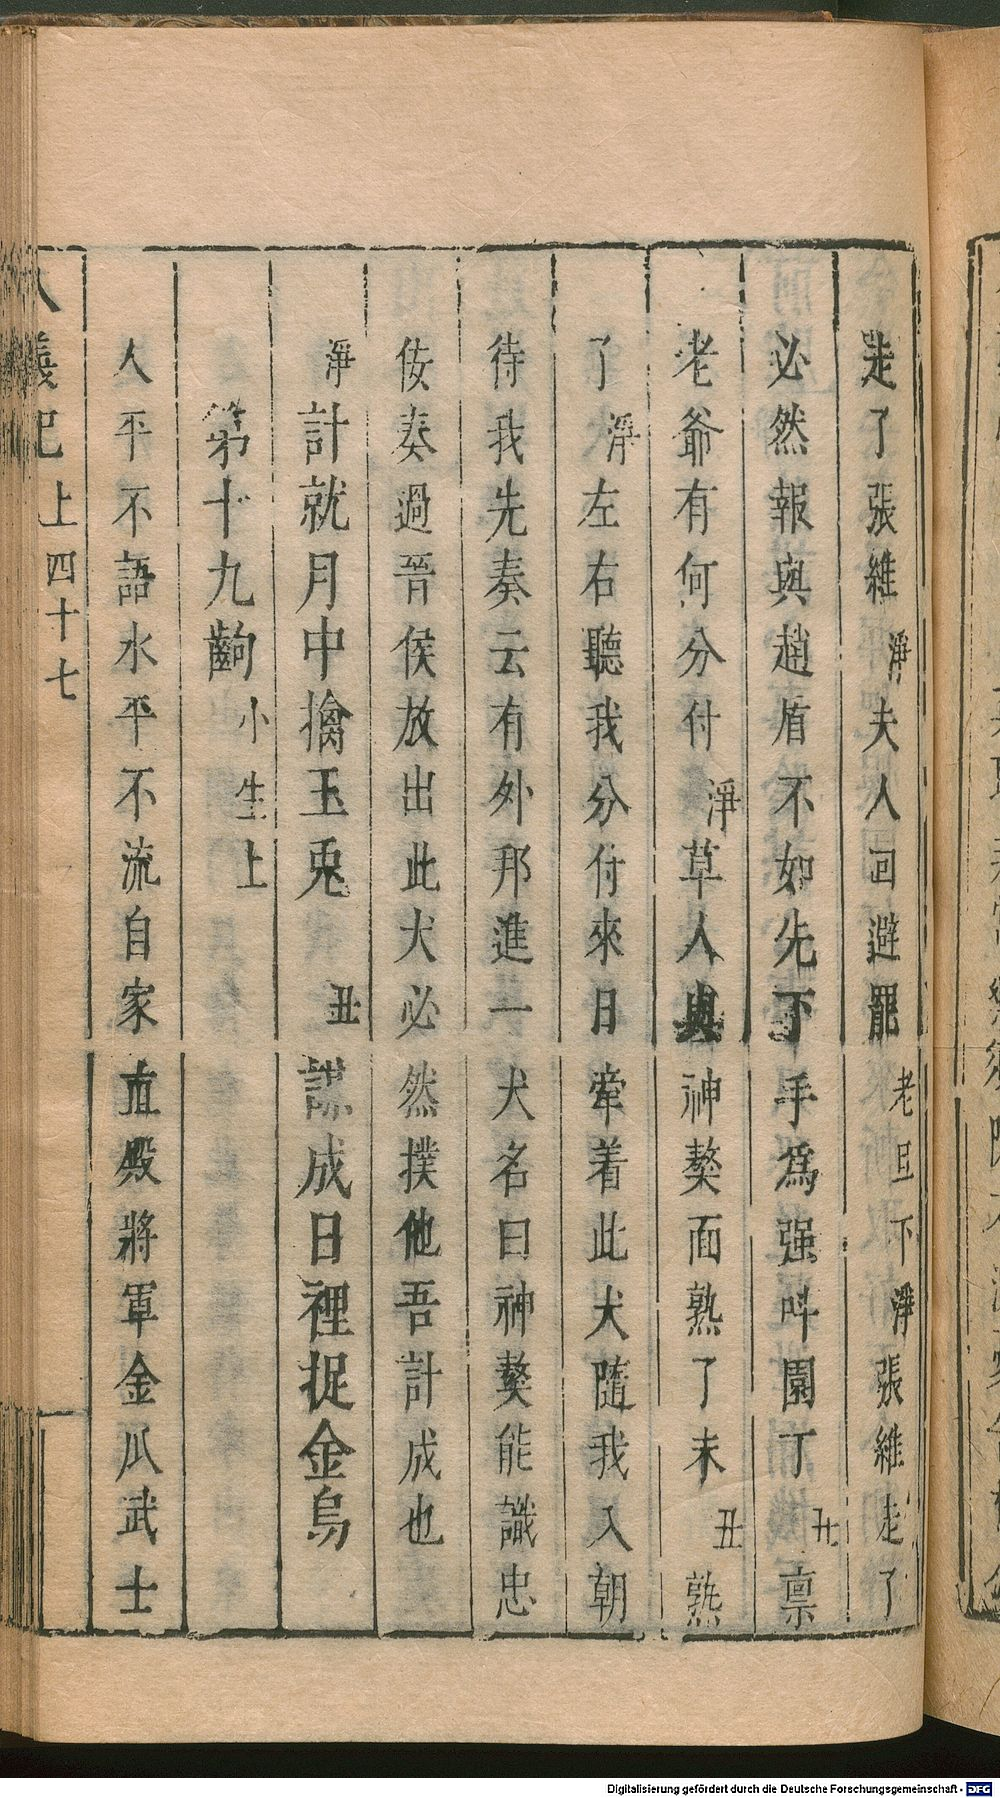 走了張維淨夫人回避罷老旦下淨張維走了
必然報與趙盾不如先下手爲强叫園丁丑禀
老爺有何分付淨草人與神獒面熟了未丑熟
了淨左右聽我分付來日牽着此犬隨我入朝
待我先奏云有外邦進一犬名曰神獒能識忠
佞奏過晉侯放出此犬必然撲他吾計成也
淨計就月中擒玉兎丑謀成日裡捉金烏
第十九齣小生上
人平不語水平不流自家直殿將軍金瓜武士
八義記上四十七
Digitalisierung gefördert durch die Deutsche Forschungsgemeinschaft - DFG